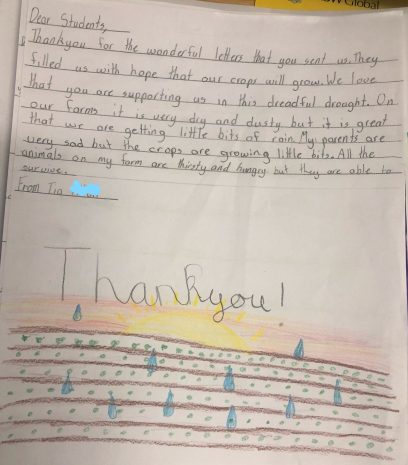 Global
Dear Students,
Thankyou for the wonderful letters that you sent us. They
filled us with hope that our crops will grow. We love
that you are supporting us in this dreadful drought. On
our farms it is very dry and dusty but it is great
that we are getting little bits of rain. My parents are
very sad but the crops are growing little bits. All the
animals on my farm are thirsty and hungry but they are able to
survive.
From Tia
Thankyou!